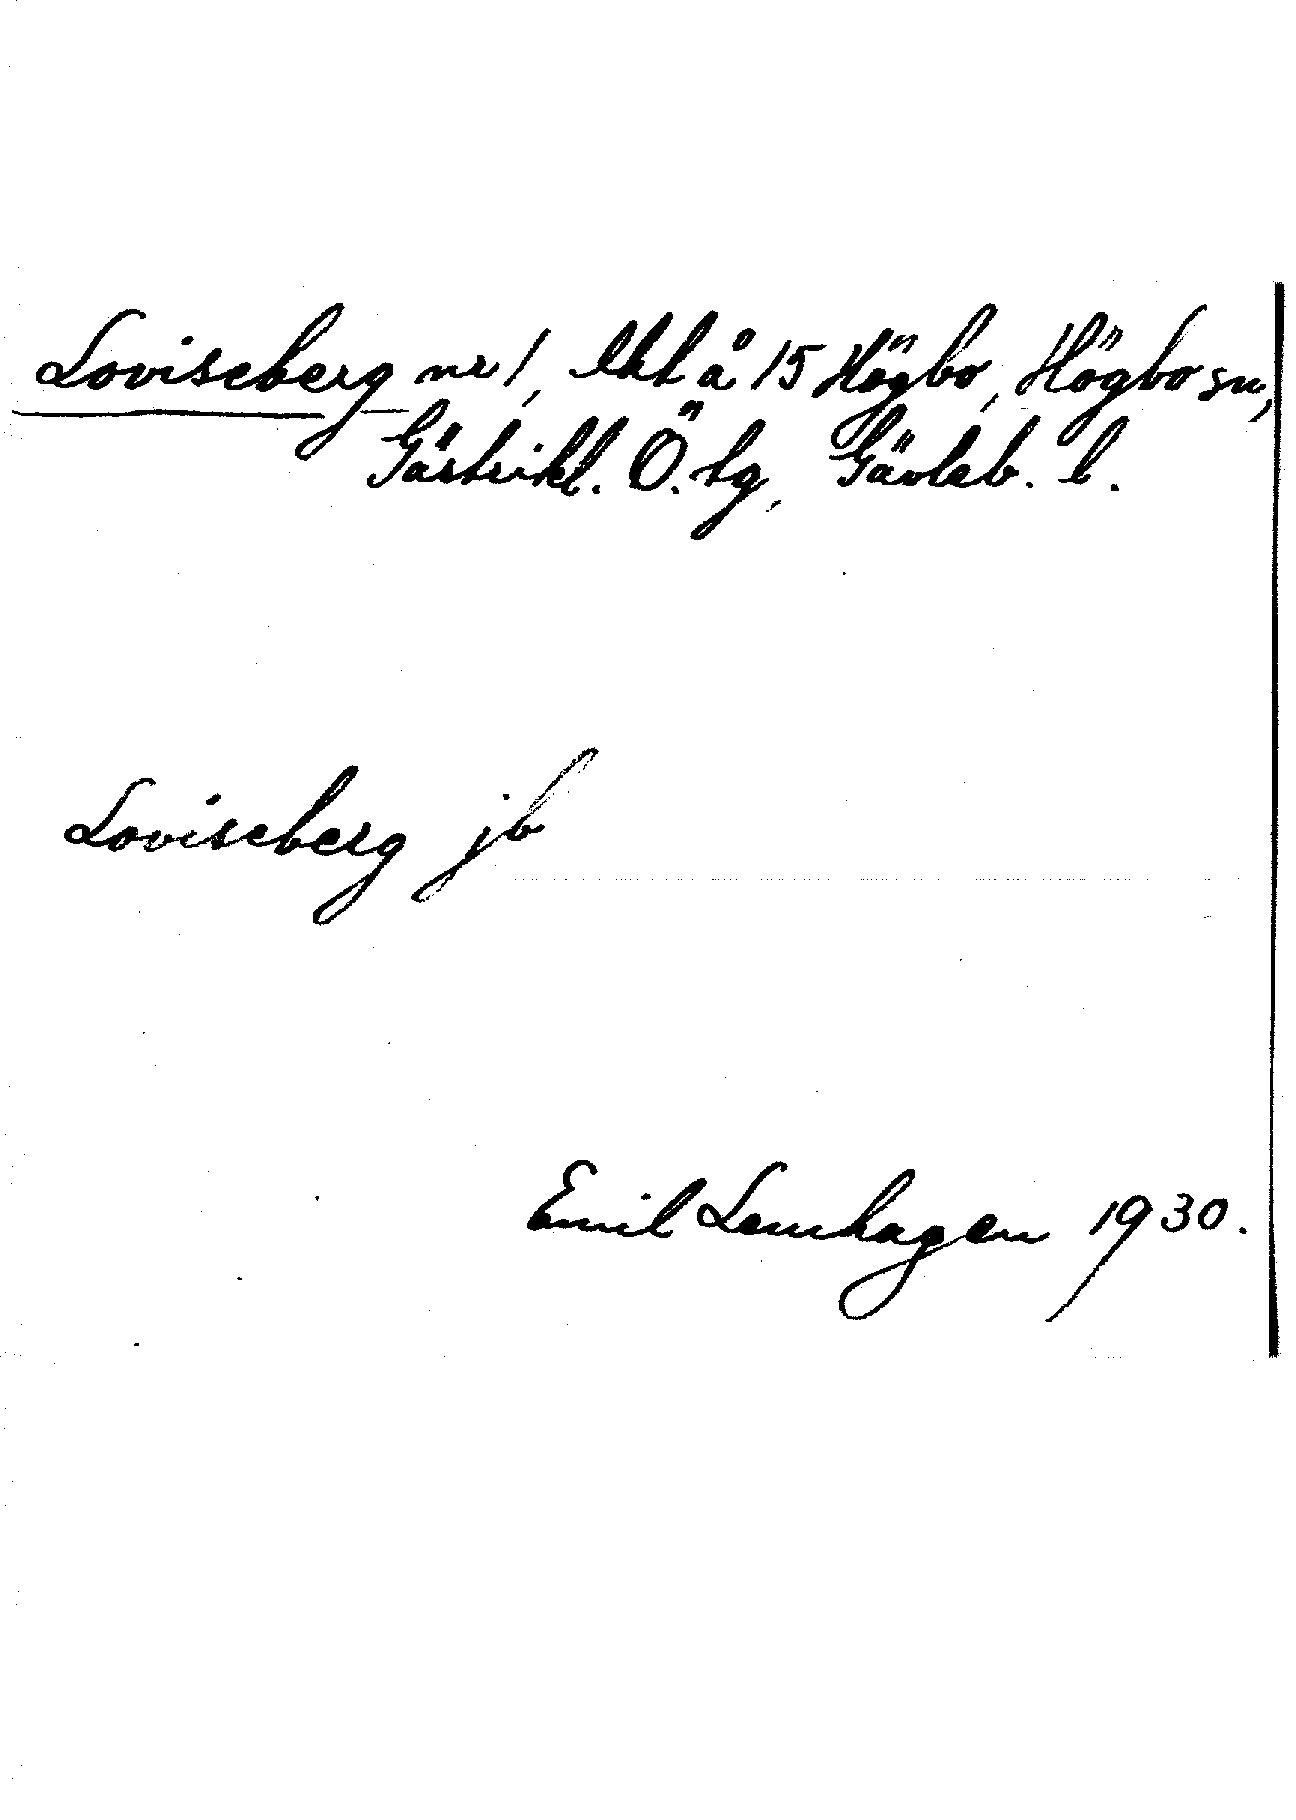 Loviseberg nr 1, lht å 15 Högbo, Högbo sn,
Gästrikl. Ö. tg, Gävleb. l.
Loviseberg jb
Emil Lennhagen 1930.